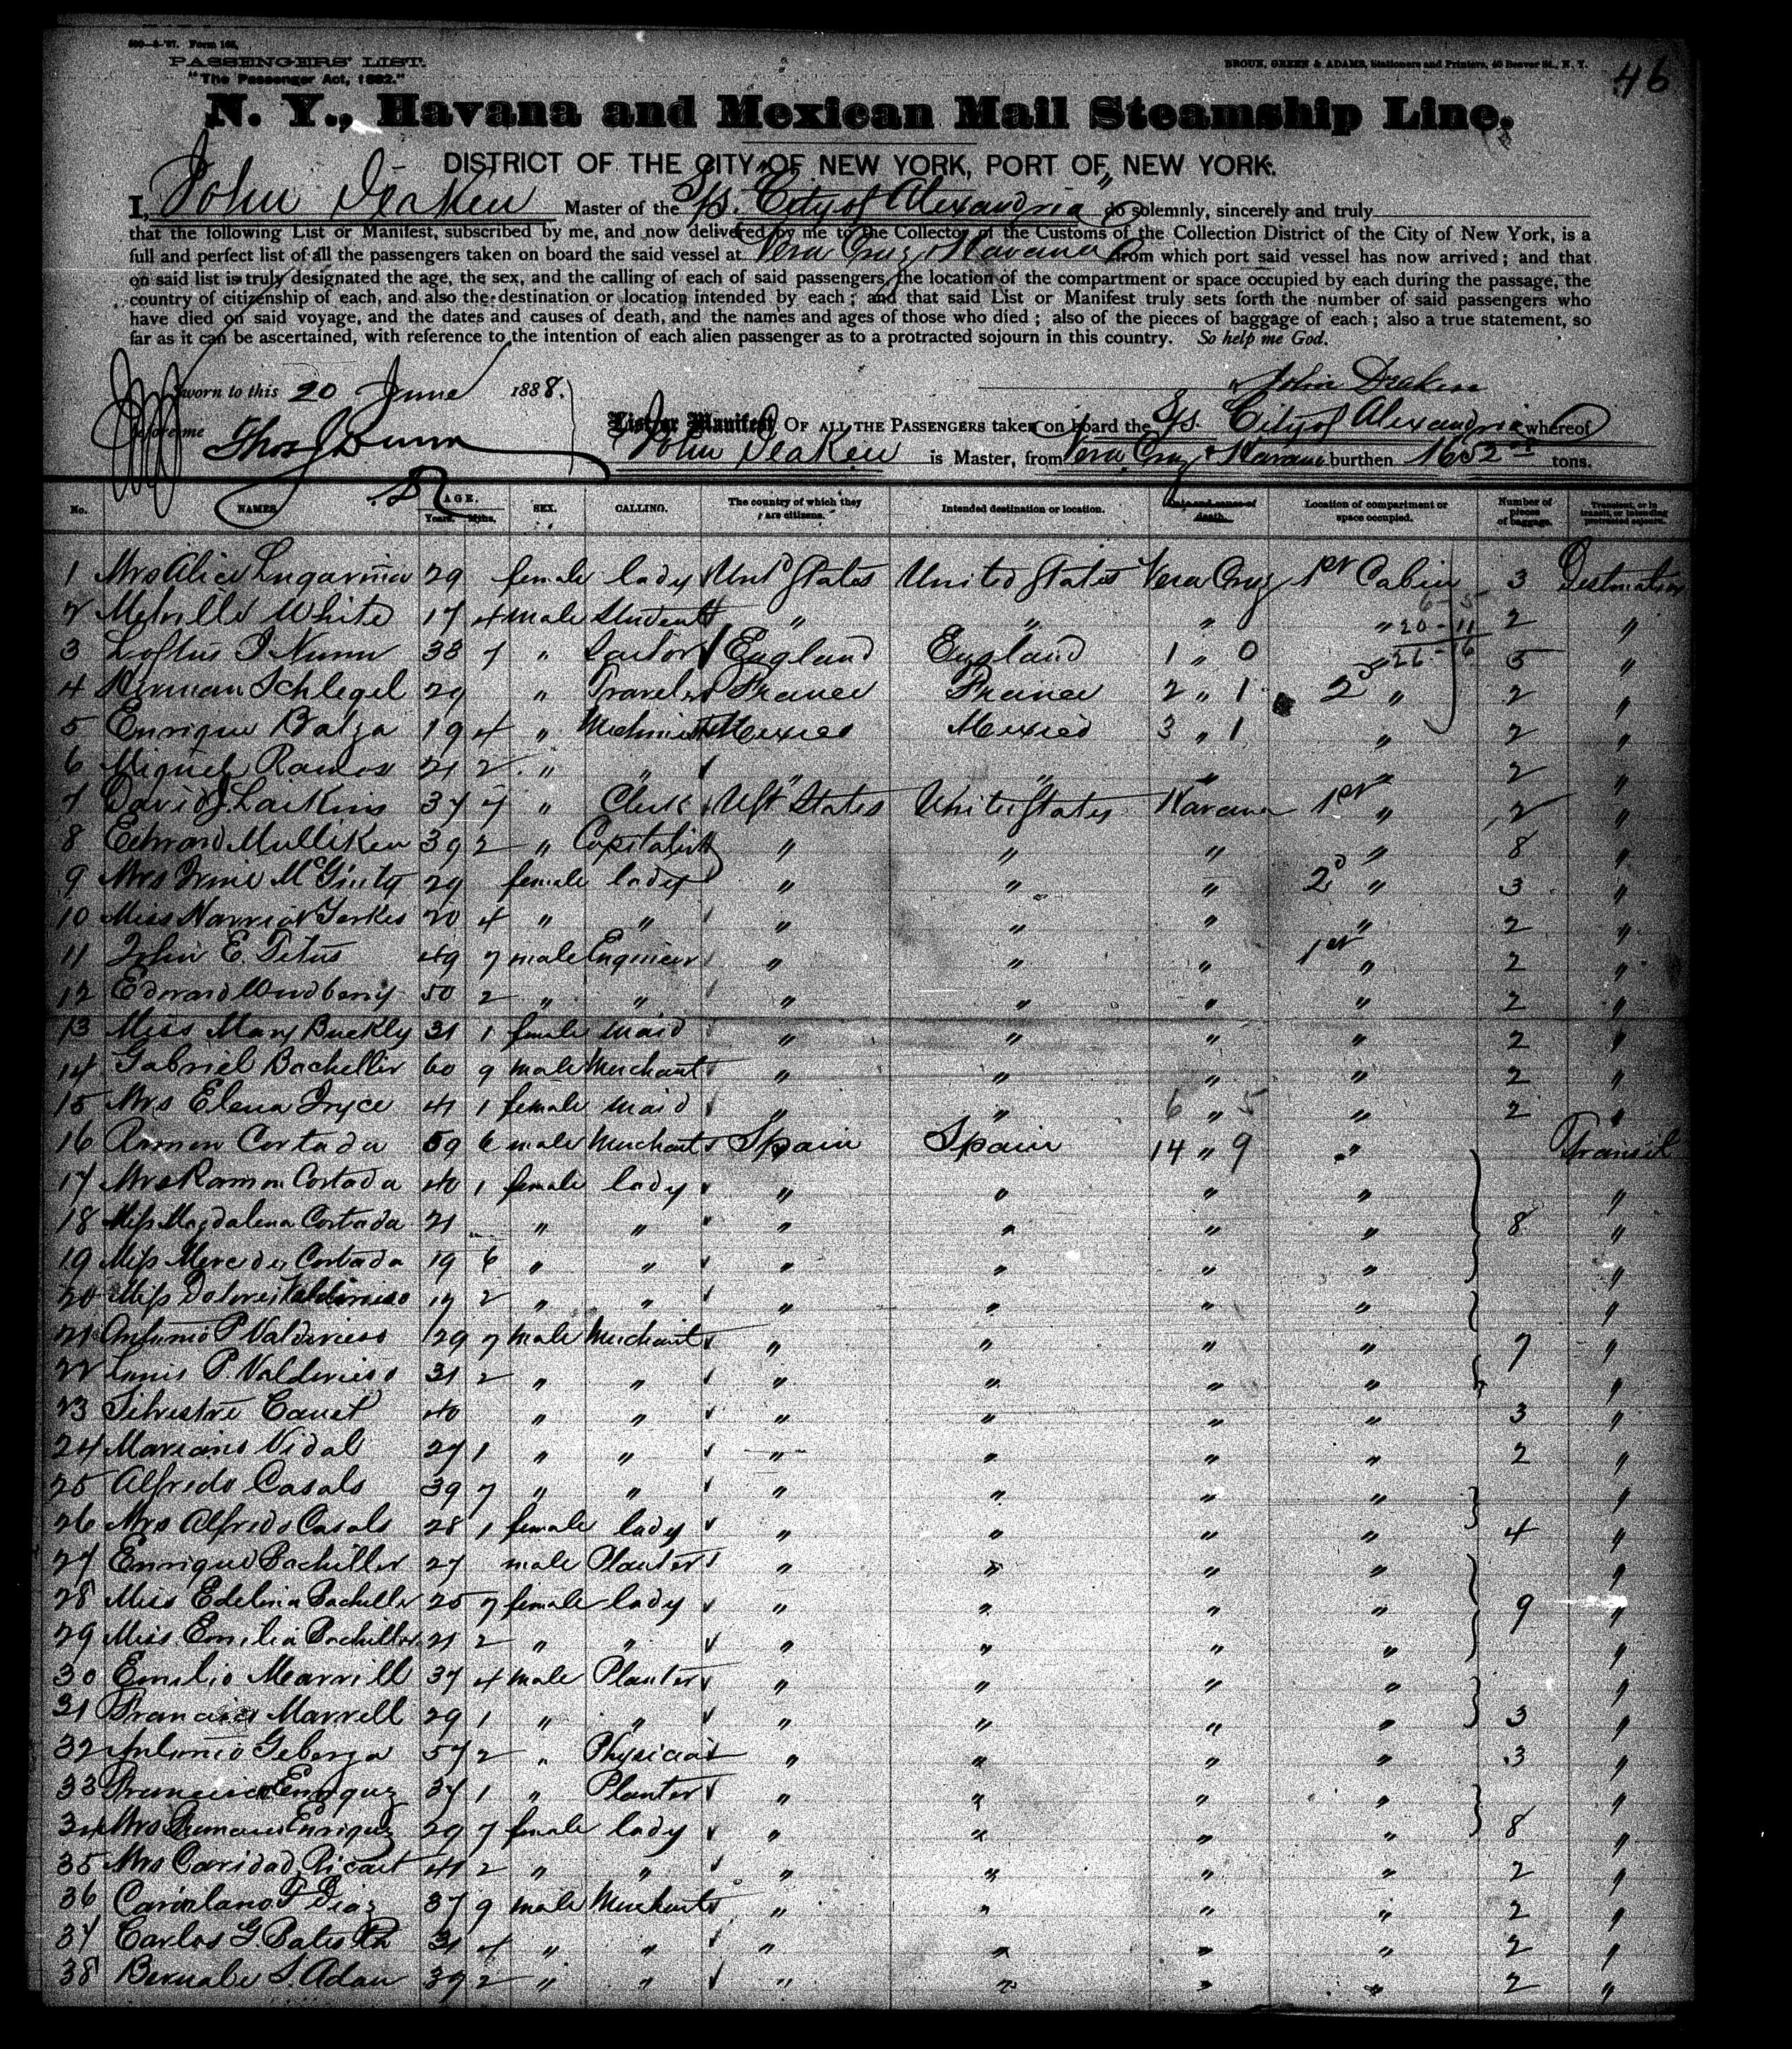 PASSENGERS' LIST.
"The Passenger Act, 1882."
BROUN, GREEN & ADAMS, Stationers and Printers, 40 Beaver St., N. Y.
46
N. Y., Havana and Mexican Mail Steamship Line.
DISTRICT OF THE CITY OF NEW YORK, PORT OF NEW YORK.
I, John Deaken Master of the S/s. "City of Alexandria" do solemnly, sincerely and truly
that the following List or Manifest, subscribed by me, and now delivered by me to the Collector of the Customs of the Collection District of the City of New York, is a
full and perfect list of all the passengers taken on board the said vessel at Vera Cruz & Havana from which port said vessel has now arrived; and that
on said list is truly designated the age, the sex, and the calling of each of said passengers, the location of the compartment or space occupied by each during the passage, the
country of citizenship of each, and also the destination or location intended by each; and that said List or Manifest truly sets forth the number of said passengers who
have died on said voyage, and the dates and causes of death, and the names and ages of those who died; also of the pieces of baggage of each; also a true statement, so
far as it can be ascertained, with reference to the intention of each alien passenger as to a protracted sojourn in this country. So help me God.
John Deaken
Sworn to this 20 June 1888.
before me Thos J Dunn
List or Manifest OF ALL THE PASSENGERS taken on board the S/s. City of Alexandria whereof
John Deaken is Master, from Vera Cruz & Havana burthen 1652 tons.
No. NAMES. AGE. Years. Mths. SEX. CALLING. The country of which they are citizens. Intended destination or location. Date and cause of death. Location of compartment or space occupied. Number of pieces of baggage. Transient, or in transit, or intending protracted sojourn.
1 Mrs Alice 29 female lady Unt'd States United States Vera Cruz 1st Cabin 3 Destination
2 Melville White 17 4 male Student " " " " 2 "
3 Loftus J Nunn 38 7 " England England 1 " 0 " 5 "
4 Herman Schlegel 29 " Traveler France France 2 " 1 2d " 2 "
5 Enrique Balza 19 4 " Mexico Mexico 3 " 1 " 2 "
6 Miguel Ramos 21 2 " " " " " " 2 "
7 David J Larkins 37 7 " Clerk States United States Havana 1st " 2 "
8 Edward Mulliken 39 2 " Capitalist " " " " 8 "
9 Mrs McGinty 29 female lady " " " 2d " 3 "
10 Miss Harriot Yerkes 20 4 " " " " " " 2 "
11 John E. Titus 49 7 male Engineer " " " 1st " 2 "
12 Edward Woodberry 50 2 " " " " " " 2 "
13 Miss Mary Buckly 31 1 female maid " " " " 2 "
14 Gabriel Bacheller 60 9 male Merchant " " " " 2 "
15 Mrs Elena 41 1 female maid " " 6 " 5 " 2 "
16 Ramon Cortada 59 6 male Merchant Spain Spain 14 " 9 " Transit
17 Mrs Ramon Cortada 40 1 female lady " " " " "
18 Miss Magdalena Cortada 21 " " " " " " 8 "
19 Miss Mercedes Cortada 19 6 " " " " " " "
20 Miss Dolores Valdivieso 17 2 " " " " " " "
21 Antonio P Valdivieso 29 7 male Merchant " " " " 7 "
22 Louis P. Valdivieso 31 2 " " " " " " "
23 Silvestre Canet 40 " " " " " " 3 "
24 Mariano Vidal 27 1 " " " " " " 2 "
25 Alfredo Casals 39 7 " " " " " " "
26 Mrs Alfredo Casals 28 1 female lady " " " " 4 "
27 Enrique Bachiller 27 male Planter " " " " "
28 Miss Edelina Bachiller 25 7 female lady " " " " 9 "
29 Miss Emilia Bachiller 21 2 " " " " " " "
30 Emilio Marrill 37 4 male Planter " " " " "
31 Francisco Marrell 29 1 " " " " " " 3 "
32 Antonio Geberga 57 2 " Physician " " " " 3 "
33 Francisco Enriquez 37 1 " Planter " " " " "
34 Mrs Enriquez 29 7 female lady " " " " 8 "
35 Mrs Caridad Ricart 41 2 " " " " " " 2 "
36 Diaz 37 9 male Merchant " " " " 2 "
37 Carlos G. Batista 31 4 " " " " " " 2 "
38 Bernabe S. Adan 39 2 " " " " " " 2 "